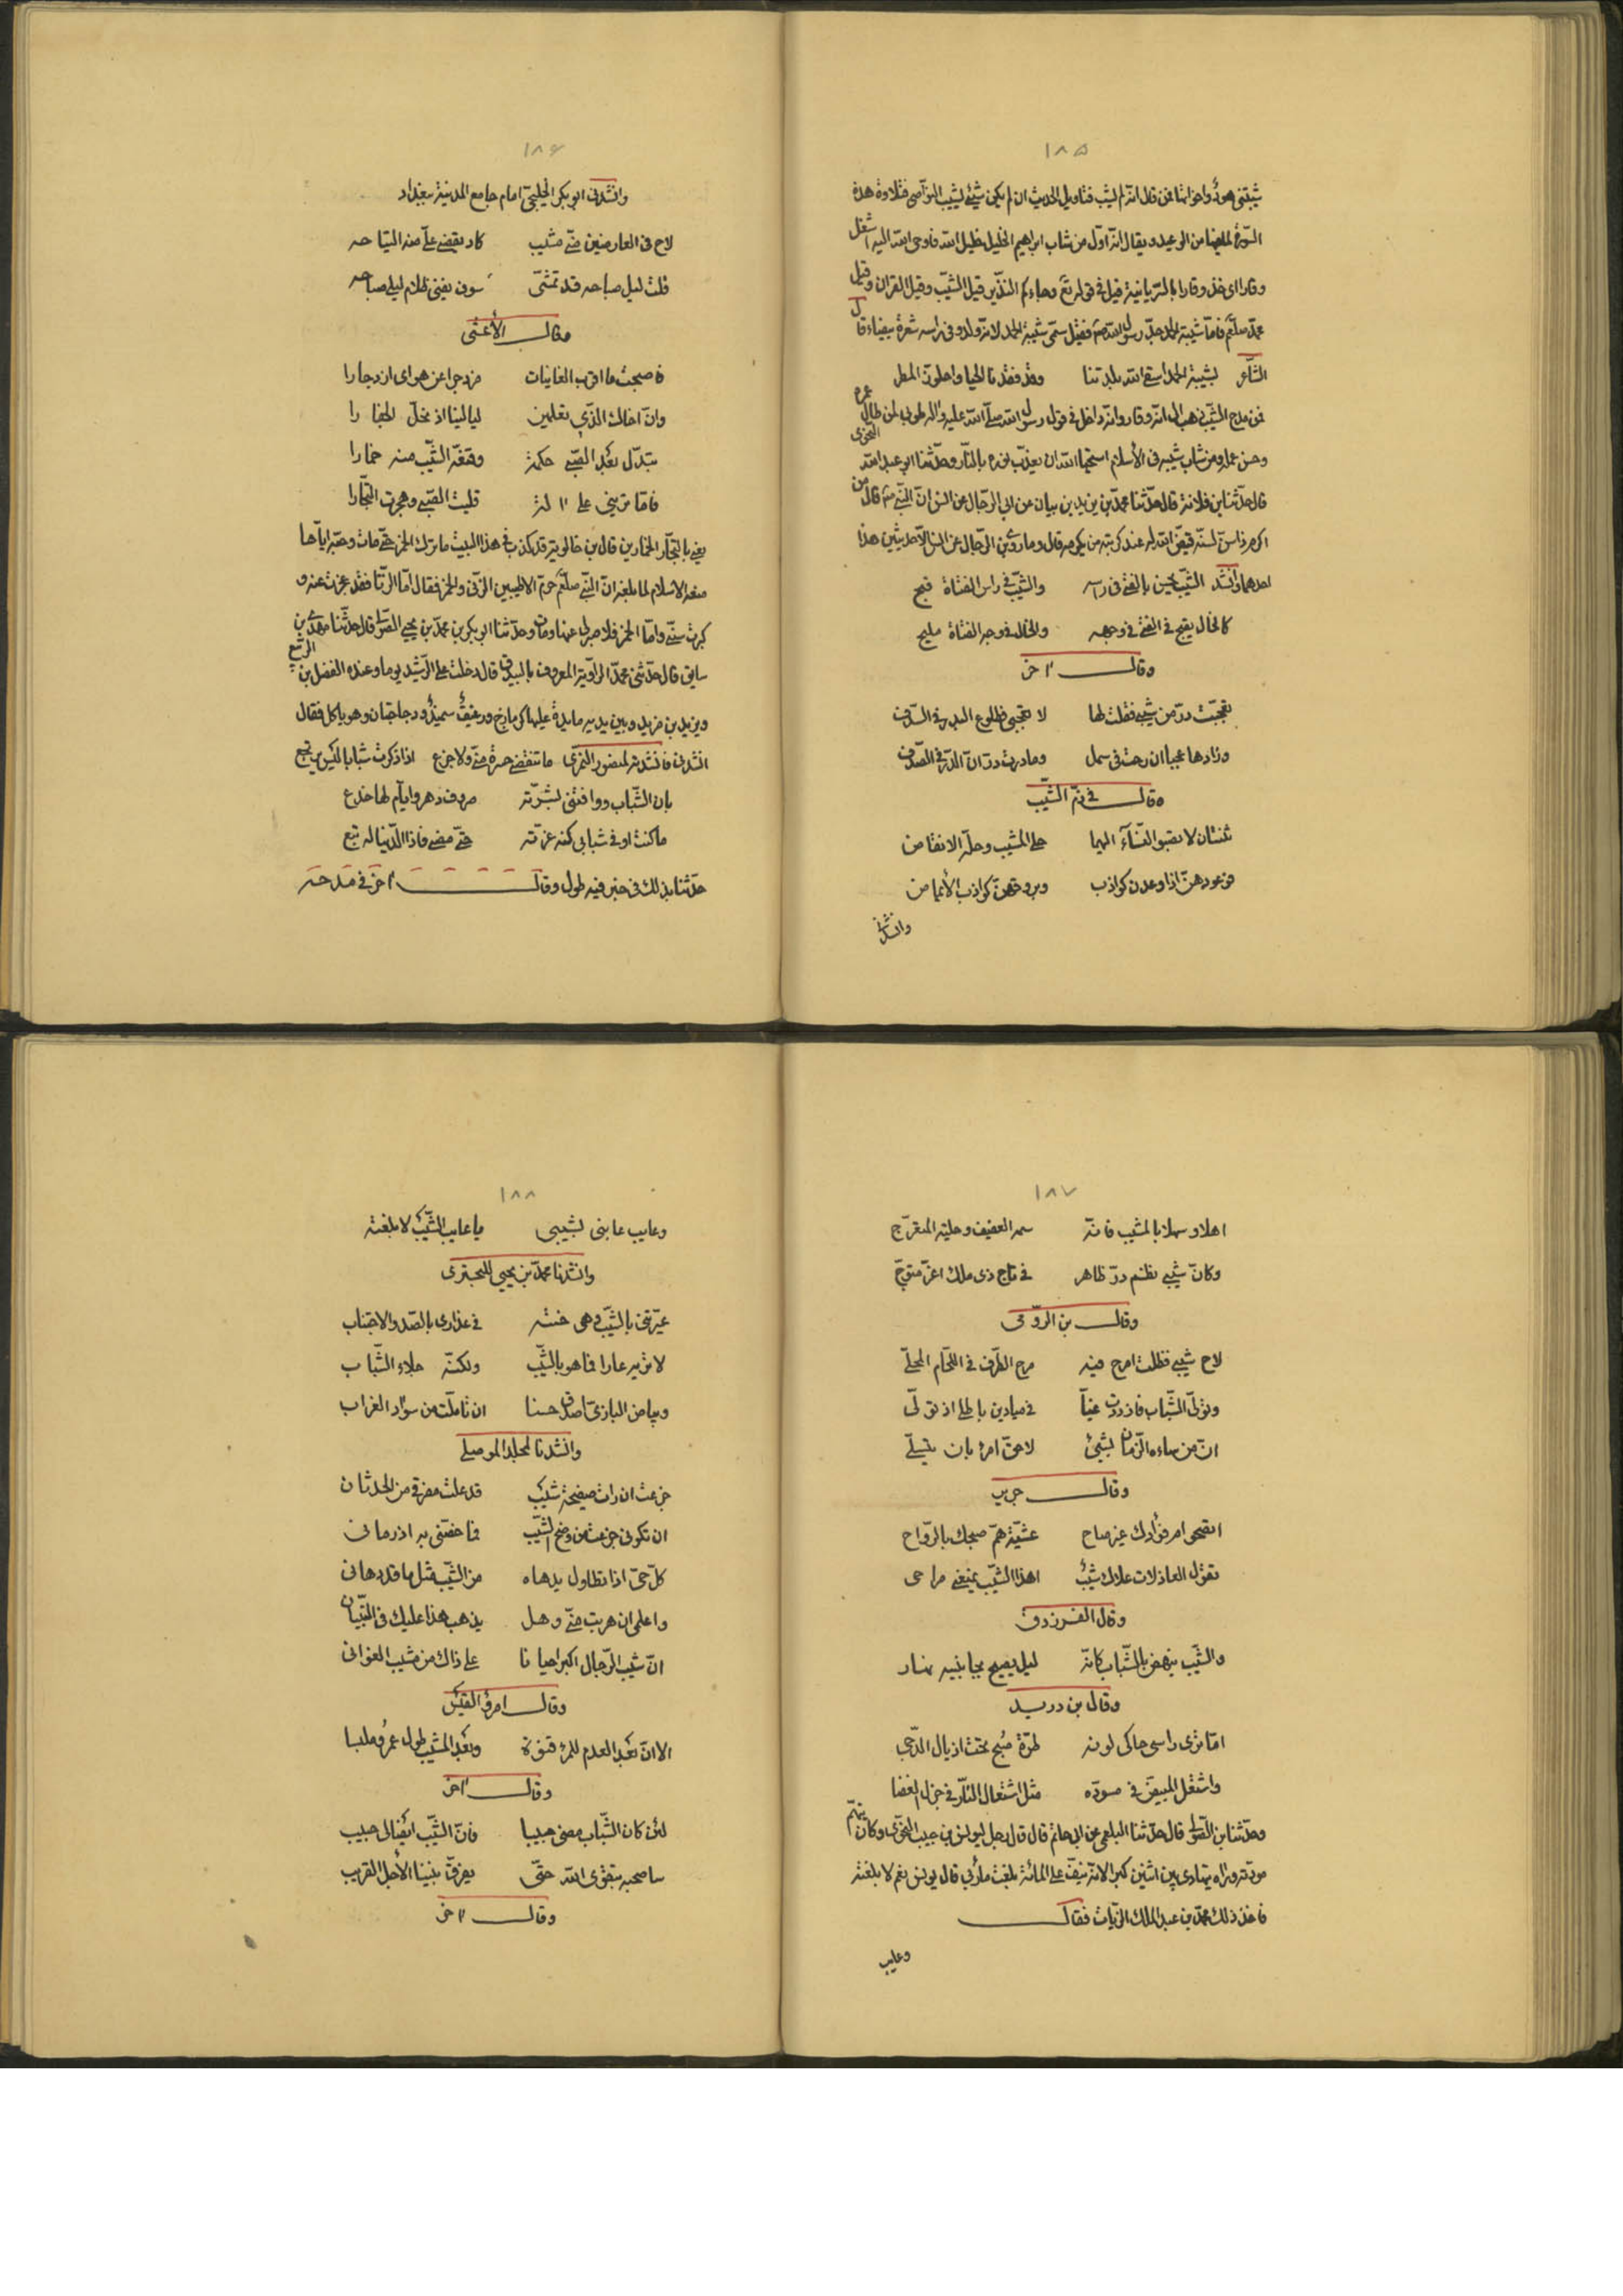 ١٨٥
شيبتني هود واخواتها فمن قال انه لم يشب فتاويل الحديث ان لم يكن شيئ يشيب النواصي فتلاوة هذه
السورة لما فيها من الوعيد ويقال انه اول من شاب ابراهيم الخليل خليل الله فاوحى الله اليه اشعل
وقارا اى خذ وقارا بالسريانية قيل في قوله تع وجاءكم النذير قيل الشيب وقيل القران وقيل
محمد صلعم فاما شيبة الحمد جد رسول الله ص فقيل سمى شيبة الحمد لانه ولد وفي راسه شعرة بيضاء قال
الشاعر بشيبة الحمد اسقى الله بلدتنا وقد فقدنا الحيا واجلوذ المطر
فمن مدح الشيب ذهب الى انه وقار وانه داخل في قول رسول الله صلى الله عليه واله طوبى لمن طال عمره
وحسن عمله ومن شاب شيبه في الأسلام استحيا الله ان يعذب نوره بالنار وحدثنا ابو عبد الله النحوى
قال حدثنا بن فلانة قال حدثنا محمد بن يزيد بن بيان عن ابي الرجال عن انس ان النبي ص قال من
اكرم ذا سن لسنه قيض الله له عند كربته من يكرمه قال وما روى بن الرجال عن انس الا حديثين هذا
احدهما وانشد الشيب يحسن بالفتى في راسه والشيب في راس الفتاة قبيح
كالخال يقبح في الفتى في وجهه والخال في وجه الفتاة مليح
وقال اخر
تعجبت در من شيبي فقلت لها لا تعجبي فطلوع البدر في السدف
وزادها عجبا ان رحت في سمل وما درت در ان الدر في الصدف
وقال في ذم الشيب
ثنتان لا تصبو النساء اليهما حلى المشيب وحلة الانفاض
فوعودهن اذا وعدن كواذب وبروقهن كواذب الأيماض
وانشدني
١٨٦
وانشدني ابو بكر الخليجي امام جامع المدينة ببغداد
لاح في العارضين مني مشيب كاد يقضي على منه الصياحه
قلت ليل صباحه قد تمشى سوف يفنى ظلام ليلي صباحه
وقال الأعشى
فاصبحت ما اقرب الغانيات مزدجرا عن هواى ازدجارا
وان اخاك الذي تعلمين ليالينا اذ نحل الجفارا
تبدل بعد الصبى حكمة وقنعه الشيب منه خمارا
فاما تريني على الة قليت الصبى وهجرت التجارا
يعني بالتجار الخمارين قال بن خالويه قد كذب في هذا البيت ما ترك الخمر حتى مات وحبه اياها
منعه الاسلام لما بلغه ان النبي صلعم حرم الاطيبين الزنى والخمر فقال اما الزنا فقد عجزت عنه و
كبرت سني واما الخمر فلا صبر لى عنها ومات وحدثنا ابو بكر بن محمد بن يحيى الصولى قال حدثنا مهدى بن
سابق قال حدثني محمد الراوية المعروف بالبيدق قال دخلت على الرشيد يوما وعنده الفضل بن الربيع
ويزيد بن مزيد وبين يديه مايدة عليها كرمازج ورغيف سميذ ودجاجتان وهو ياكل فقال
انشدني فانشدته لمنصور النمرى ما تنقضي حسرة مني ولا جزع اذا ذكرت شبابا ليس يرتجع
بان الشباب ووافتني بشرته صروف دهر وايام لها خدع
ما كنت اوفي شبابي كنه عزته حتى مضى فاذا الدنيا له تبع
حدثنا بذلك في خبر فيه طول وقال اخر في مدحته
١٨٧
اهلا وسهلا بالمشيب فانه سمه العفيف وحلية المتحرج
وكان شيبي نظم در ظاهر في تاج ذى ملك اغر متوج
وقال بن الرومى
لاح شيبي فظلت امرح فيه مرح الطرف في اللجام المحلى
وتولى الشباب فازددت غيا في ميادين باطلى اذ تولى
ان من ساءه الزمان بشيئ لاحق امرء بان يتسلى
وقال جرير
اتصحو ام فؤادك غير صاح عشية هم صحبك بالرواح
تقول العاذلات علاك شيب اهذا الشيب يمنعني مراحى
وقال الفرزدق
والشيب ينهض بالشباب كانه ليل يصيح بجانبيه نهار
وقال بن دريد
اما ترى راسى حاكى لونه طرة صبح تحت اذيال الدجى
واشتعل المبيض في مسوده مثل اشتعال النار في جزل الغضا
وحدثنا بن الصولى قال حدثنا البلعى عن ابي حاتم قال قال رجل ليونس بن حبيب النحوى وكان يتهم
مودته وراه يتهادى بين اثنين كبرا لانه نيف على المائة بلغت ما أرى قال يونس نعم لا بلغته
فاخذ ذلك محمد بن عبد الملك الزيات فقال
وعايب
١٨٨
وعايب عابنى بشيبى يا عايب الشيب لا بلغته
وانشدنا محمد بن يحيى للبحترى
عيرتني بالشيب وهى جنته في عذارى بالصد والاجتناب
لا تريه عارا فما هو بالشيب ولكنه جلاء الشباب
وبياض البازى اصدق حسنا ان تاملت من سواد الغراب
وانشدنا لمخلد الموصلى
جزعت ان رات صفيحة شيب قد علت مفرقي من الحدثان
ان تكونى جزعت من وضح الشيب فما خفتني به اذ رمانى
كل حى اذا تطاول يدهاه من الشيب مثل ما قد دهانى
واعلمى ان هربت منى وهل يذهب هذا عليك في التبيان
ان شيب الرجال اكبر احيانا على ذاك من مشيب الغوانى
وقال امرؤ القيس
الا ان بعد العدم للمرء قنوة وبعد المشيب طول عمر وملبسا
وقال اخر
لئن كان الشباب مضى حبيبا فان الشيب ايضا لى حبيب
ساصحبه بتقوى الله حتى يفرق بيننا الأجل القريب
وقال اخر